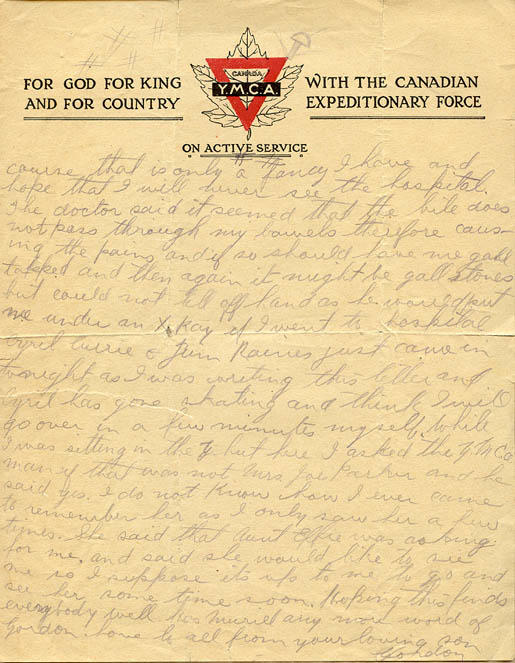 FOR GOD FOR KING
AND FOR COUNTRY
CANADA
Y.M.C.A.
WITH THE CANADIAN
EXPEDITIONARY FORCE
"ON ACTIVE SERVICE"
course that is only a fancy I have and
hope that I will never see the hospital.
The doctor said it seemed that the bile does
not pass through my bowels therefore caus-
ing the pains and if so should have me gall
tapped and then again it might be gall stones
but could not tell off hand as he would put
me under an X Ray if I went to hospital
Cyril Currie & Jim Raines just came in
tonight as I was writing this letter and
Cyril has gone skating and think I will
go over in a few minutes myself, while
I was sitting in the Y. hut here I asked the Y.M.C.a
man if that was not Mrs. Joe Parker and he
said yes. I do not know how I ever came
to remember her as I only saw her a few
times. She said that aunt Effie was asking
for me, and said she would like to see
me so I suppose its up to me to go and
see her some time soon. Hoping this finds
everybody well has Muriel any more word of
Gordon. love to all from your loving son
Gordon